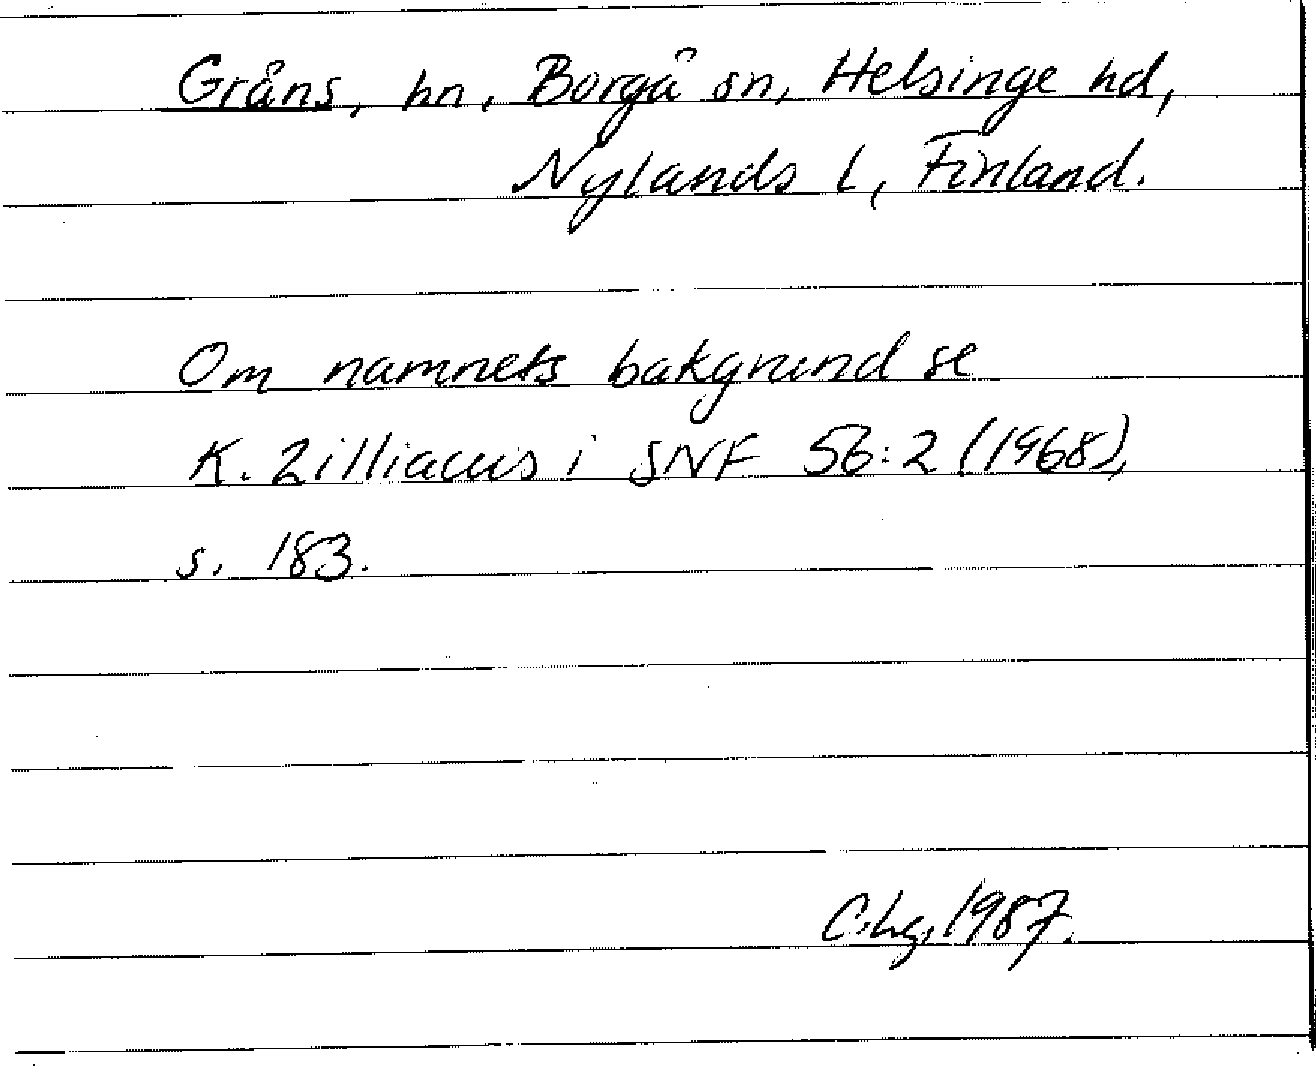 Gråns, hn, Borgå sn, Helsinge hd,
Nylands l, Finland.
Om namnets bakgrund se
K. Zilliacus i SNF 56:2 (1968),
s. 183.
C.hg, 1987.